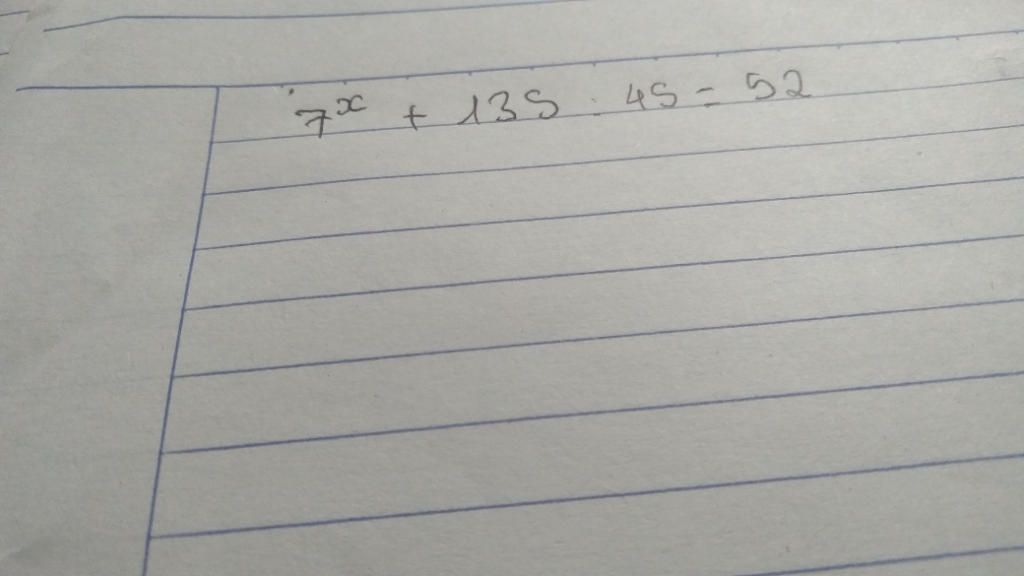 7ˣ + 135 : 45 = 52